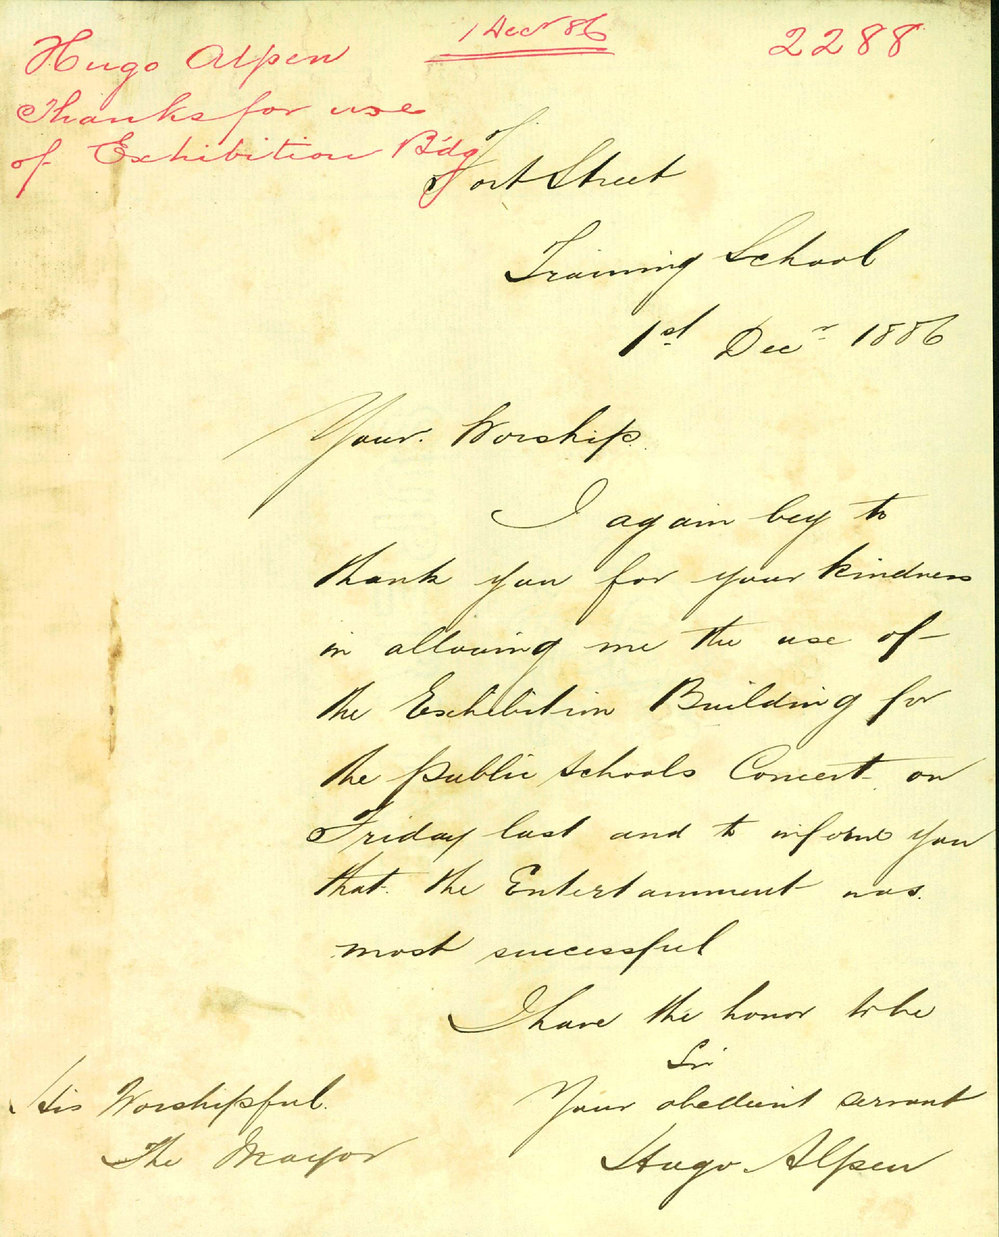 1 Decr 86
2288
Hugo Alpen
Thanks for use
of Exhibition Bdg
Fort Street
Training School
1st Decr 1886
Your Worship.
I again beg to
thank you for your kindness
in allowing me the use of
the Exhibition Building for
the public schools Concert on
Friday last and to inform you
that the Entertainment was
most successful
I have the honor to be
Sir
Your obedient servant
Hugo Alpen
His Worshipful
The Mayor